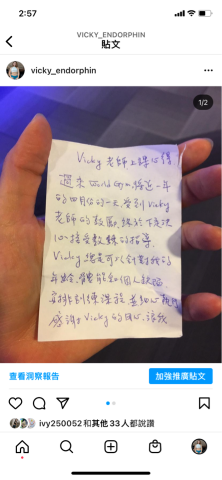 2:57
VICKY_ENDORPHIN
貼文
vicky_endorphin
1/2
Vicky 老師上課心得
週末 World Gym 接近一年
的四月份的一天，看到 Vicky
老師的教風，終於下定決
心接受教練的指導.
Vicky 總是可以針對我的
年齡、體能和個人缺陷
安排訓練課程 並細心
感謝 Vicky 的用心，讓我
查看洞察報告
加強推廣貼文
ivy250052 和其他 33 人都說讚